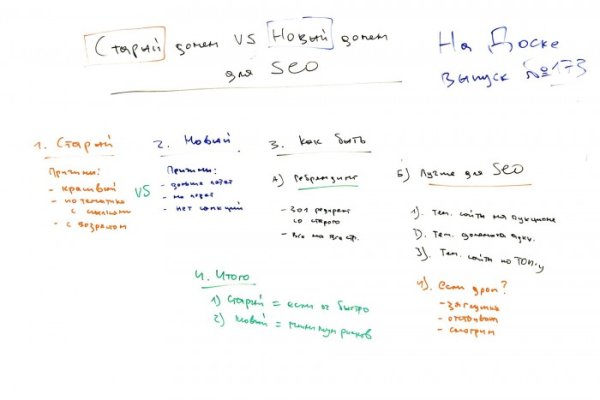 Старый домен VS Новый домен
для SEO
На Доске
выпуск №173
1. Старый
Причины:
- красивый
- по тематике
с ссылками
- с возрастом
VS
2. Новый
Причины:
- дольше
- нет санкций
3. Как быть
А) Ребрендинг
- 301 редирект
со старого
- Все на все стр.
Б) Лучше для SEO
1). Тем. сайты на аукционе
2). Тем. домены
3). Тем. сайты по ТОП-у
4). если дроп?
- загрузил
- отстоял
- смотрим
4. Итого
1) Старый = если оч быстро
2) Новый = минимум рисков